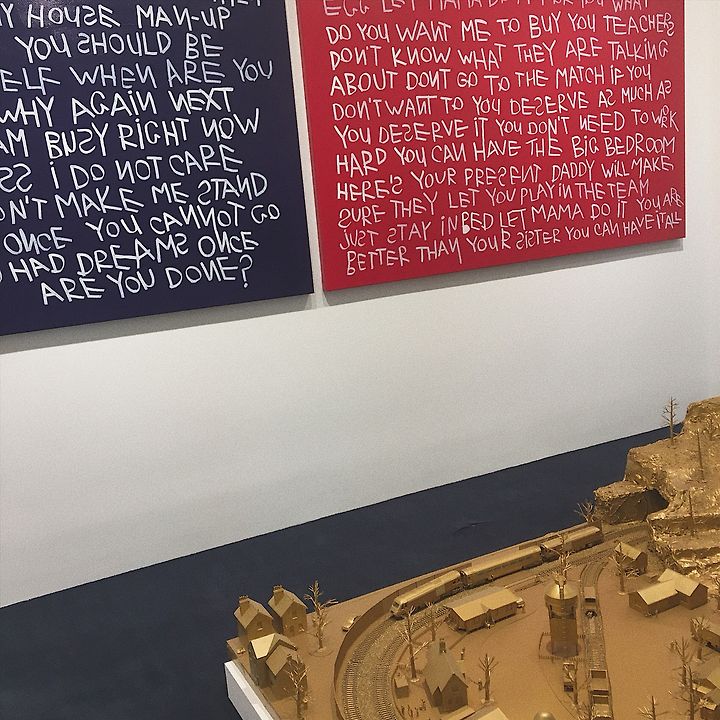 Y HOUSE MAN-UP
YOU SHOULD BE
ELF WHEN ARE YOU
WHY AGAIN NEXT
AM BUSY RIGHT NOW
SS i DO NOT CARE
ON'T MAKE ME STAND
ONCE YOU CANNOT GO
HAD DREAMS ONCE
ARE YOU DONE?
EGG LET MAMA
DO YOU WANT ME TO BUY YOU TEACHERS
DON'T KNOW WHAT THEY ARE TALKING
ABOUT DONT GO TO THE MATCH IF YOU
DON'T WANT TO YOU DESERVE AS MUCH AS
YOU DESERVE IT YOU DON'T NEED TO WORK
HARD YOU CAN HAVE THE BIG BEDROOM
HERE'S YOUR PRESENT DADDY WILL MAKE
SURE THEY LET YOU PLAY IN THE TEAM
JUST STAY IN BED LET MAMA DO IT YOU ARE
BETTER THAN YOUR SISTER YOU CAN HAVE IT ALL